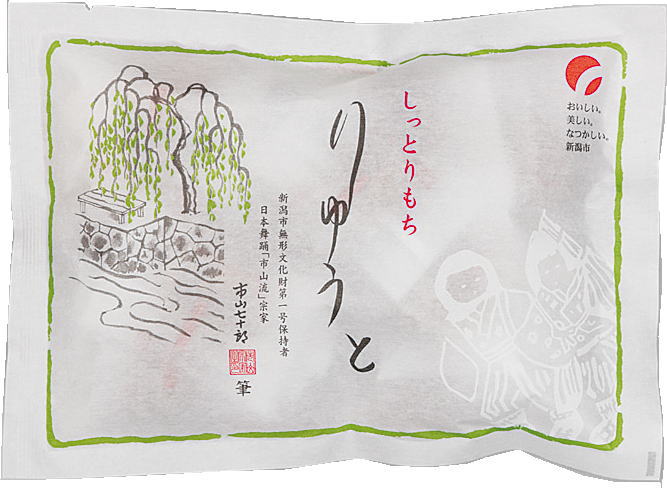 しっとりもち
りゅうと
おいしい。
美しい。
なつかしい。
新潟市
新潟市無形文化財第一号保持者
日本舞踊「市山流」宗家
市山七十郎
筆